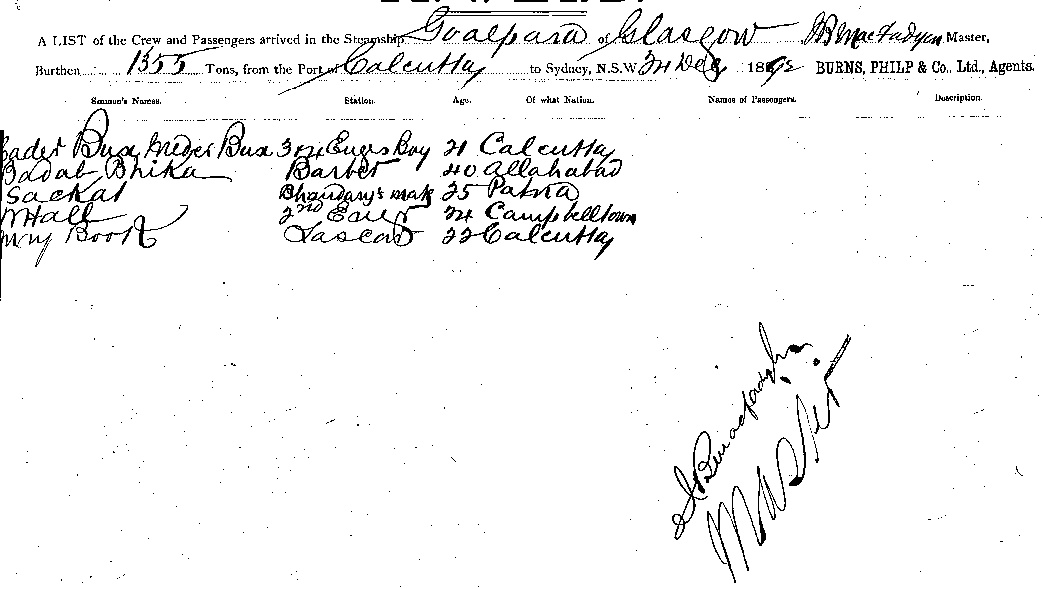 A LIST of the Crew and Passengers arrived in the Steamship Goalpara of Glasgow Master,
Burthen 1355 Tons, from the Port of Calcutta to Sydney, N.S.W. 24 Dec 1892 BURNS, PHILP & Co., Ltd., Agents.
Seaman's Names. Station. Age. Of what Nation. Names of Passengers. Description.
Bux Bux 3rd Engrs Boy 21 Calcutta
Badab Bhika Barber 40 Allahabad
Sackat Bhandary's mate 25 Patna
Hall 2nd Engr 24 Campbelltown
Lascar 22 Calcutta
Master